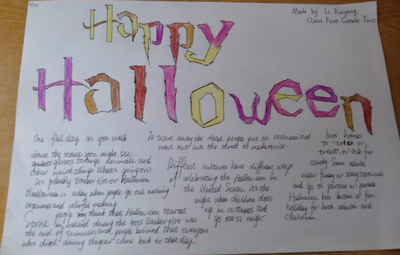 Made by Li Ruiyang
Class Five Grade Two
Happy
Halloween
One fall day as you walk
down the street you might see
ghosts strange animals and
other weird things. What's going on?
It's probably October 31st or Halloween
Halloween is a day when people go out wearing
costumes and colorful makeup
Some people think that Halloween started
in Ireland during the 400s October 31st was
the end of summer and people believed that everyone
who died during the year came back on that day.
To scare away the dead, people put on costumes and
went out into the street to make noise
Different cultures have different ways
of celebrating the Halloween In
the United States, it's the
night when children dress
up in costumes and
go out at night
from house
to
treat, or ask for
candy Some adults
wear funny or scary costumes
and go to parties or parades
Halloween has become a fun
holiday for both adults and
Children